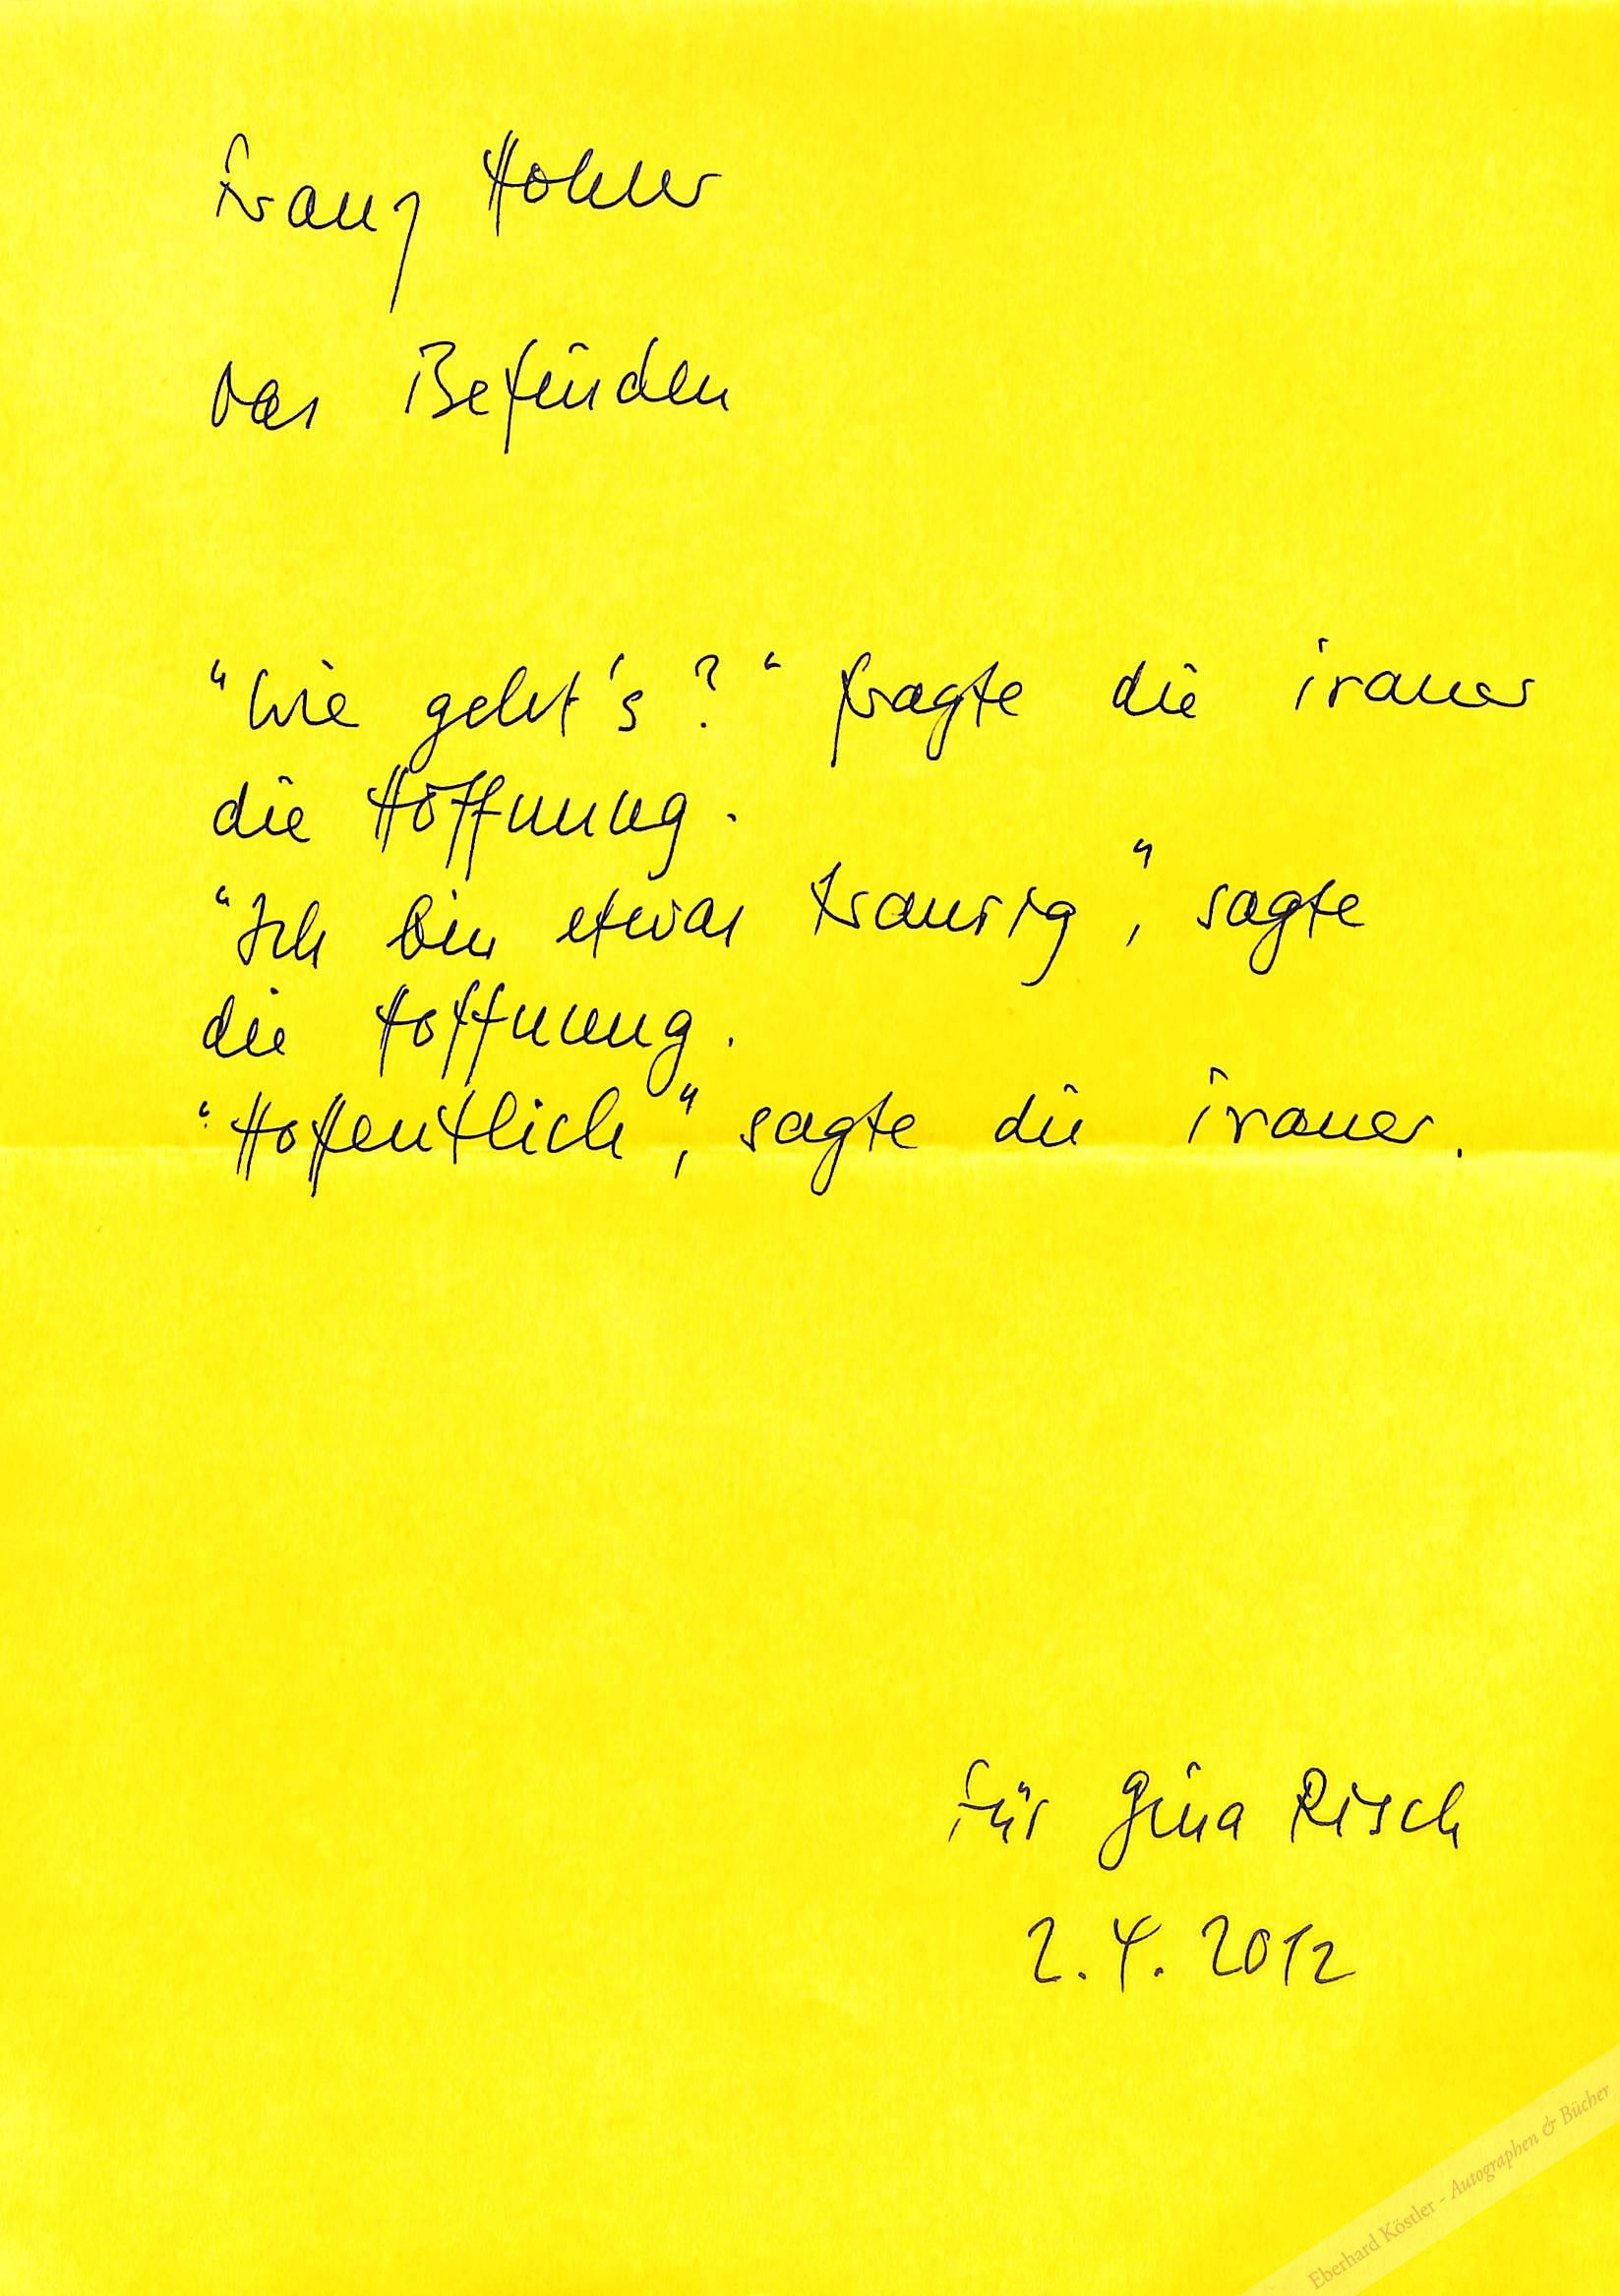 Franz Hohler
Das Befinden
"Wie geht's?" fragte die Trauer
die Hoffnung.
"Ich bin etwas traurig", sagte
die Hoffnung.
"Hoffentlich", sagte die Trauer.
Für Gina Risch
2.4.2012
Eberhard Köstler - Autographen & Bücher